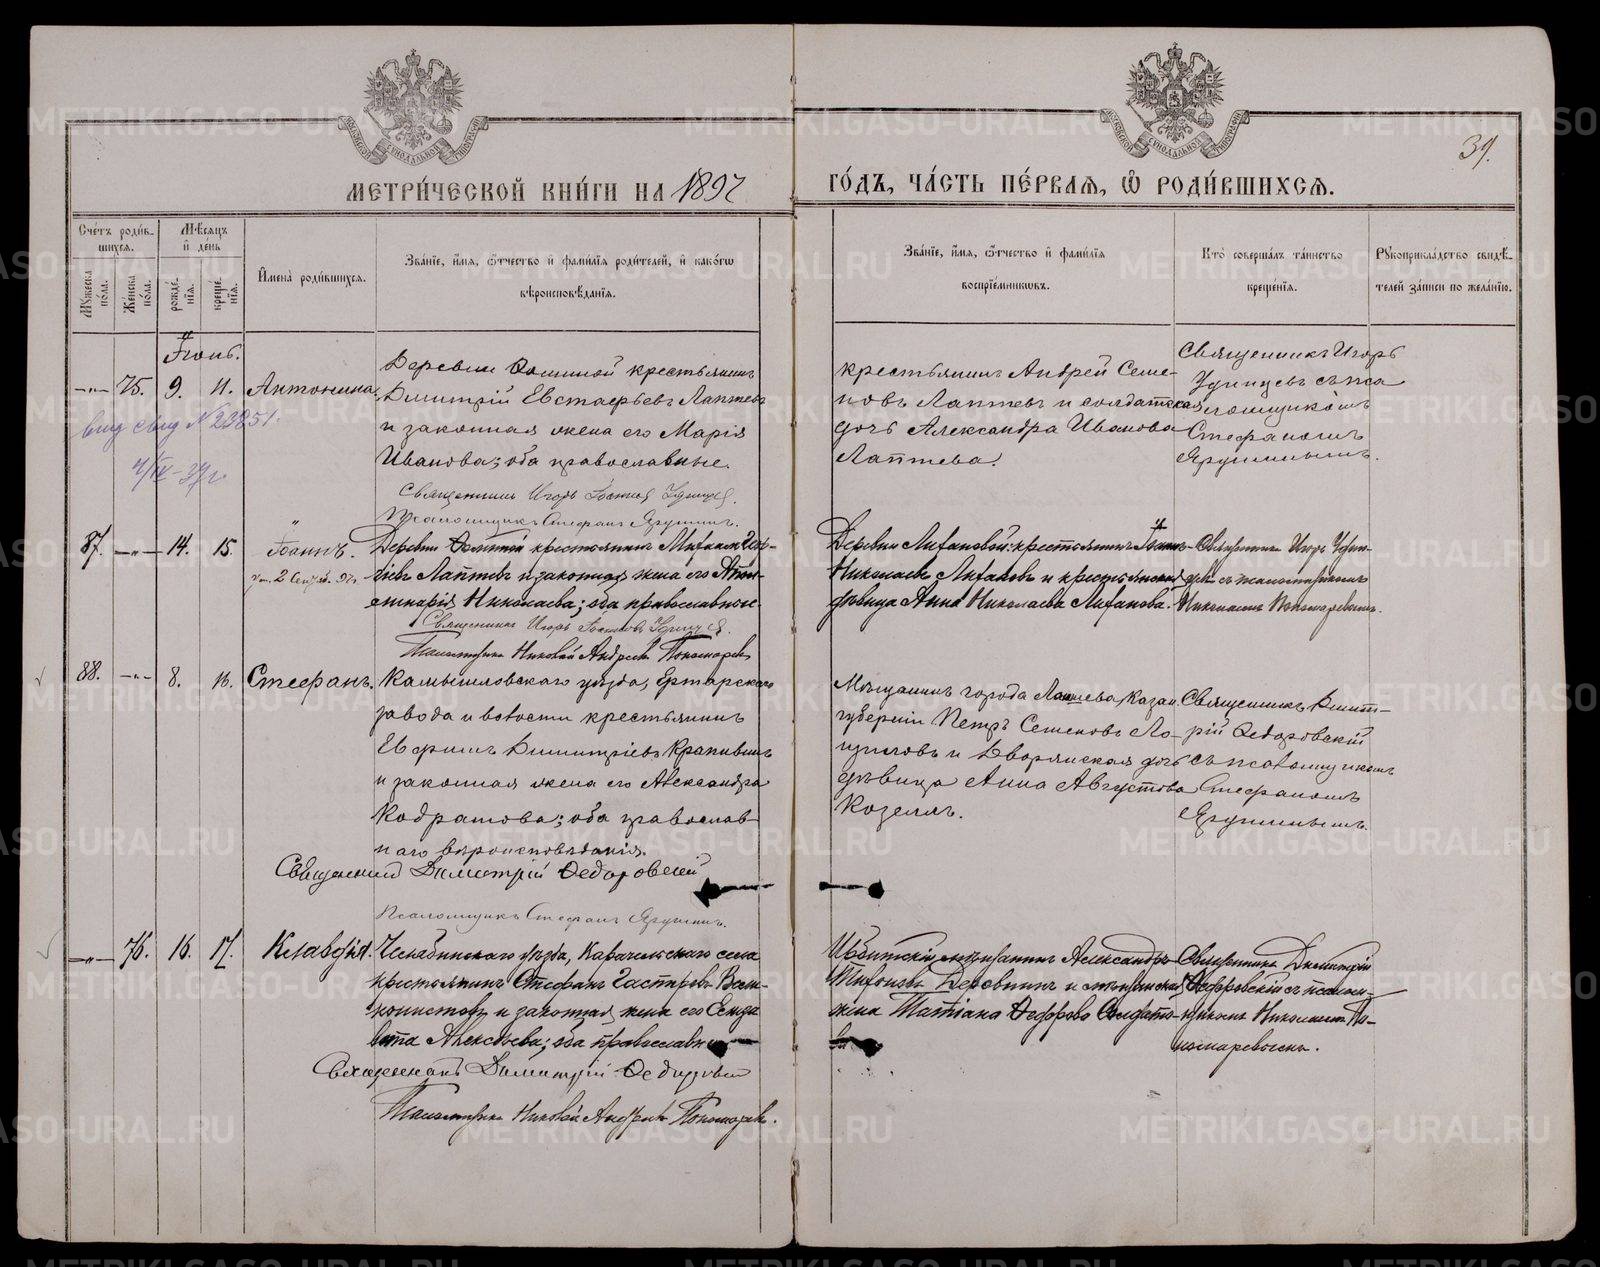 МОСКОВСКОЙ СѴНОДАЛЬНОЙ ТИПОГРАФІИ
МОСКОВСКОЙ СѴНОДАЛЬНОЙ ТИПОГРАФІИ
31.
МЕТРИ́ЧЕСКОЙ КНИ́ГИ НА 1897
ГО́ДЪ, ЧА́СТЬ ПЕ́РВАѦ, Ѡ РОДИ́ВШИХСѦ.
Сче́тъ роди́в-
шихся.
Му́жеска по́ла.
Же́нска по́ла.
Мѣ́сяцъ
и҆ де́нь
рожде́-
нїя.
креще́-
нїя.
И҆мена̀ роди́вшихся.
Зва́нїе, и҆́мя, ѻ҆́тчество и҆ фами́лїя роди́телей, и҆ како́гѡ
вѣроисповѣ́данїя.
Зва́нїе, и҆́мя, ѻ҆́тчество и҆ фами́лїя
воспрїе́мникѡвъ.
Кто̀ соверша́лъ та́инство
креще́нїя.
Рꙋкоприкла́дство свидѣ́-
телей за́писи по жела́нїю.
Іюнь.
—„— 75. 9. 11. Антонина.
Деревни крестьянинъ
Дмитрій Евстафьевъ Лаптевъ
и законная жена его Марія
Иванова; оба православные.
Священникъ Игорь
Псаломщикъ Стефанъ Ярушинъ.
выд свид № 23851.
4/IV-37г
крестьянинъ Андрей Семе-
новъ Лаптевъ и солдатская
дочь Александра Иванова
Лаптева.
Священникъ Игорь
Удинцевъ съ пса
ломщикомъ
Стефаномъ
Ярушинымъ.
87. —„— 14. 15. Іоаннъ.
Ум. 2 Сентяб. 97г.
Деревни крестьянинъ Михаилъ
Лаптевъ и законная жена его Апол-
линарія Николаева; оба православные.
Священникъ Игорь Удинцев.
Псаломщикъ Николай Андреевъ Пономарев
Деревни Лихановой крестьянинъ Іоаннъ
Николаевъ Лихановъ и крестьянская
дѣвица Анна Николаева Лиханова.
Священникъ Игорь Удин-
цевъ съ псаломщикомъ
Николаемъ Пономаревымъ.
88. —„— 8. 16. Стефанъ.
Камышловскаго уѣзда, Ертарскаго
завода и волости крестьянинъ
Ефимъ Димитріевъ Крапивинъ
и законная жена его Александра
Кодратова; оба православ-
наго вѣроисповѣданія.
Священникъ Димитрій Ѳедоровский
Псаломщикъ Стефанъ Ярушинъ.
Мѣщанинъ города Лаишева, Казан.
губерніи Петръ Семеновъ Ло-
и Дворянская дочь
дѣвица Анна Августова
Козеллъ.
Священникъ Димит-
рій Ѳедоровскій
съ псаломщикомъ
Стефаномъ
Ярушинымъ.
—„— 76. 16. 17. Клавдія.
Челябинскаго уѣзда, Карачельскаго села
крестьянинъ Стефанъ
и законная жена его Елиза
вета Алексѣева; оба православн
Священникъ Димитрій Ѳедоровский
Псаломщикъ Николай Андреевъ Пономарев.
Ирбитскій мѣщанинъ Александръ
Тихоновъ и мѣщанская
жена Татіана Ѳедорова
Священникъ Димитрій
Ѳедоровскій съ псалом-
щикомъ Николаемъ По-
номаревымъ.
METRIKI.GASO-URAL.RU